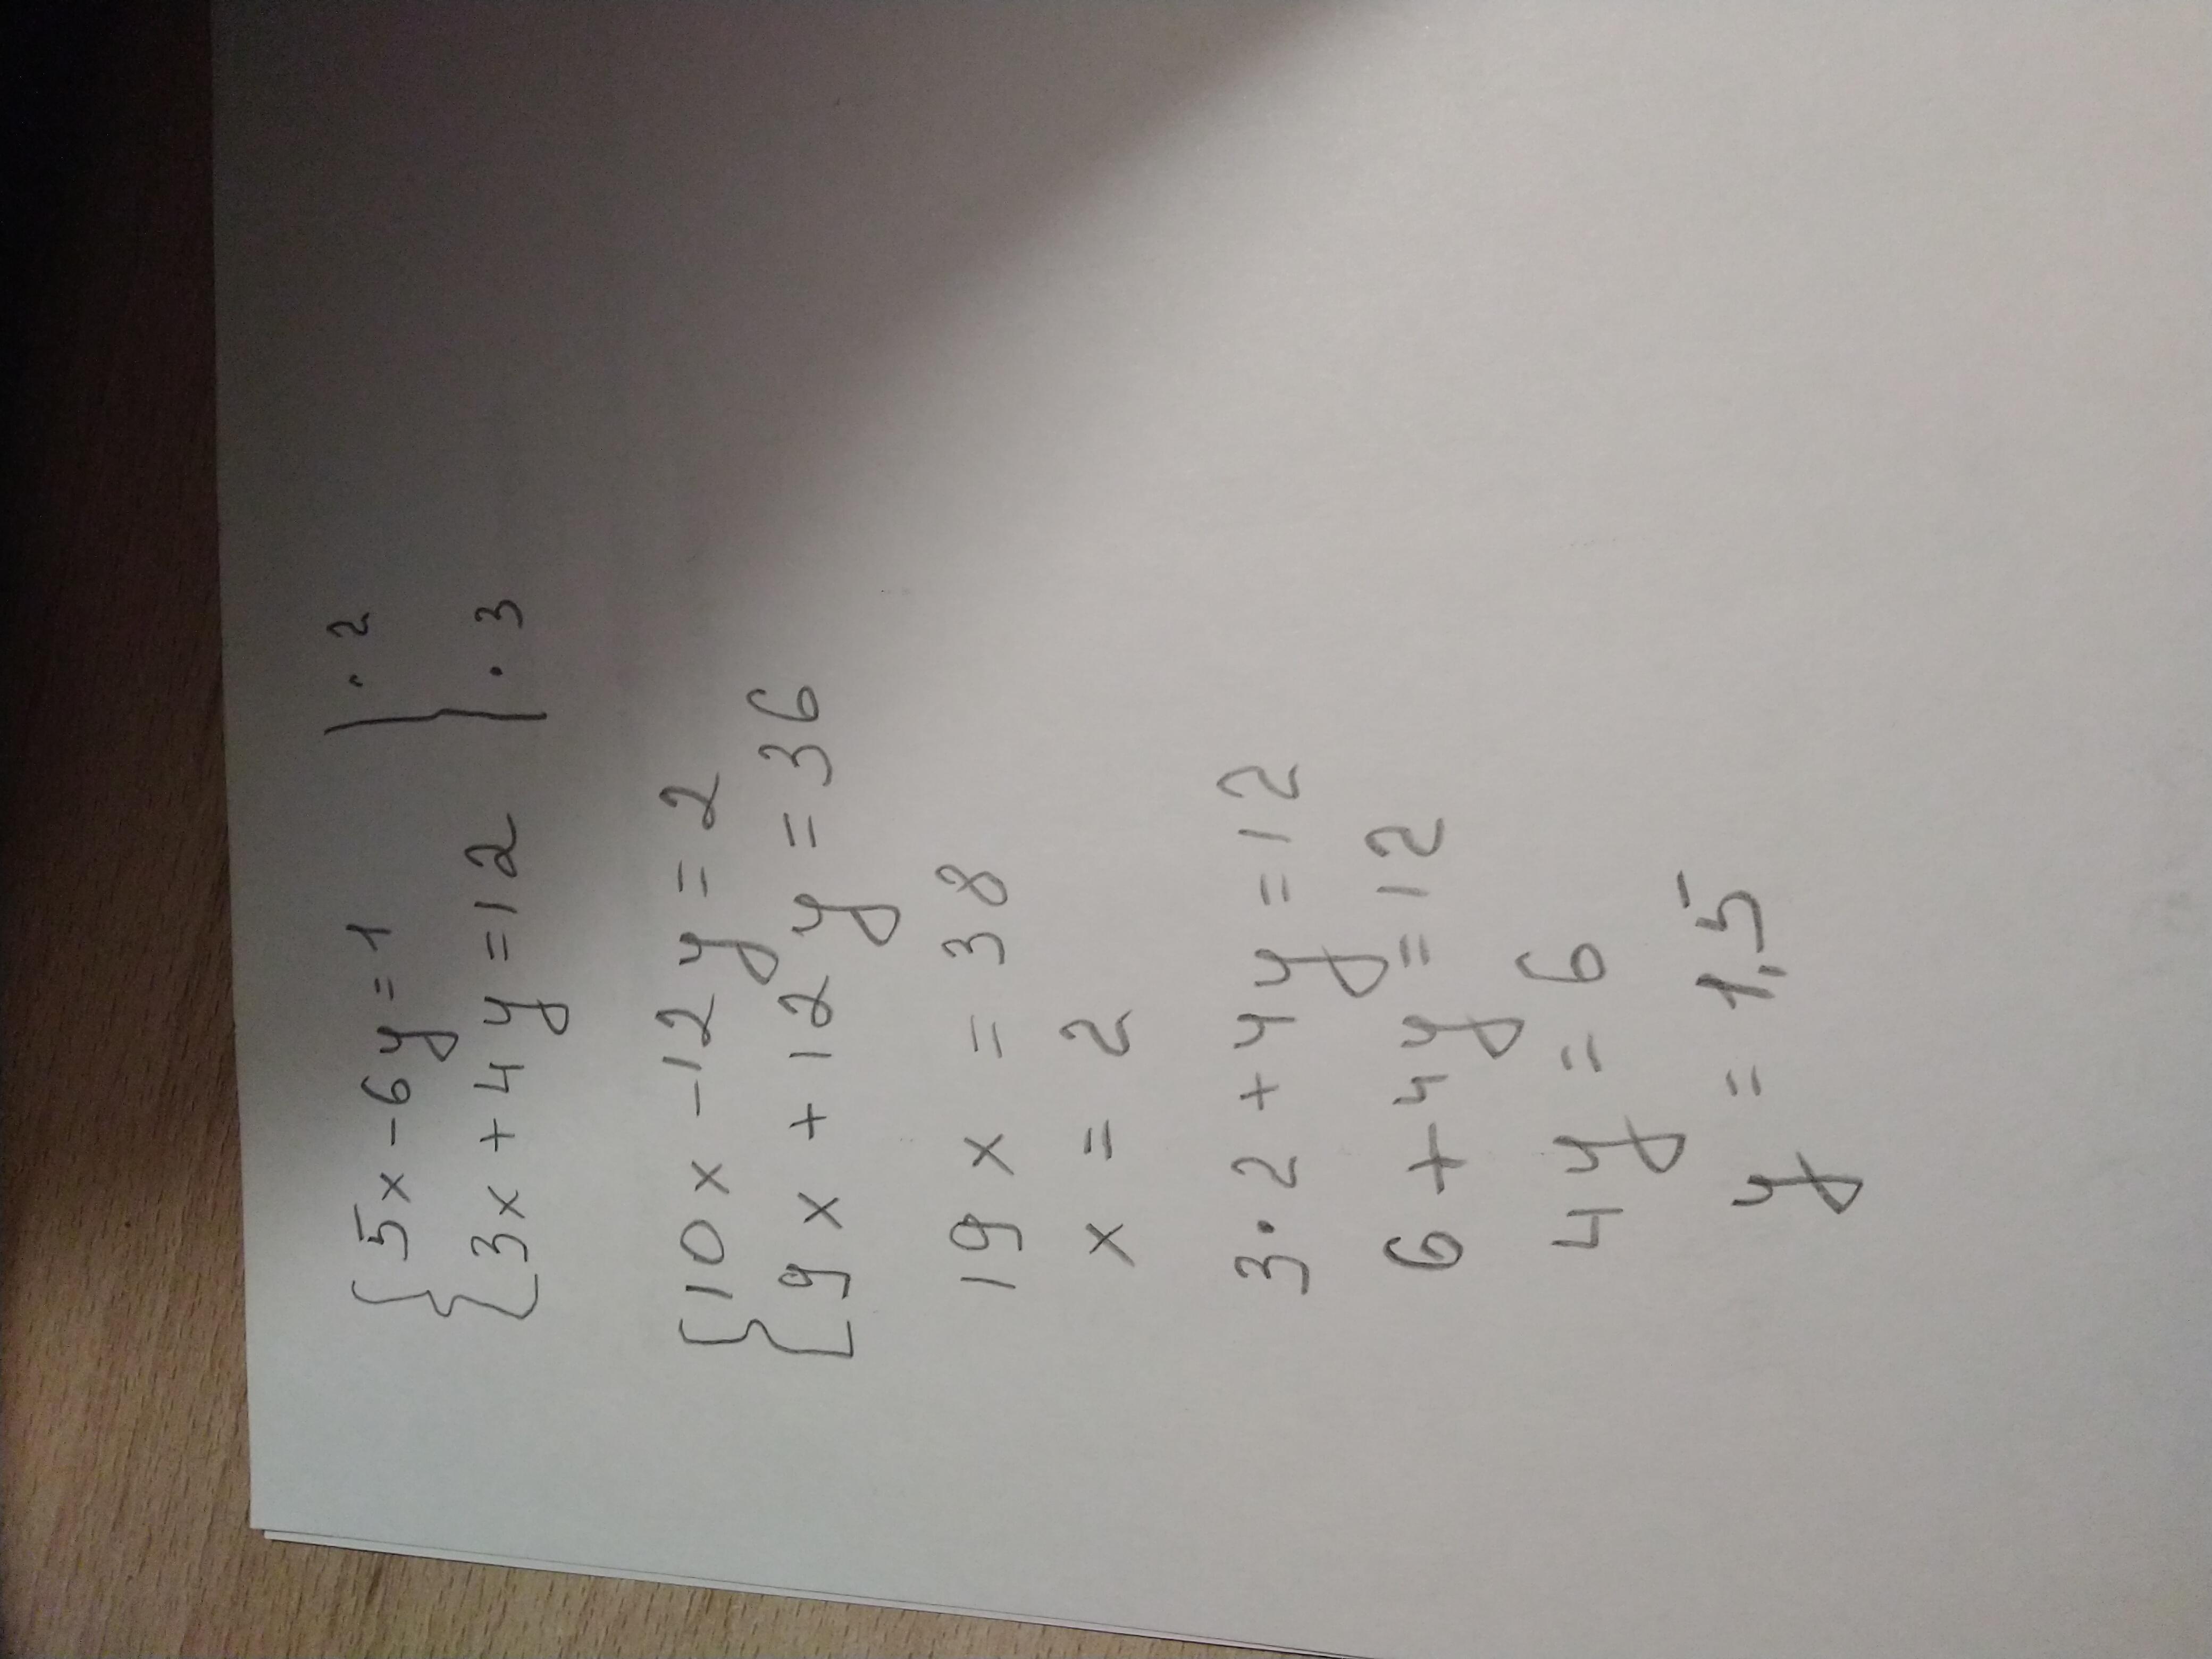 {5x-6y=1 | · 2
{3x+4y=12 | · 3
{10x-12y=2
{9x+12y=36
19x=38
x=2
3·2+4y=12
6+4y=12
4y=6
y=1,5